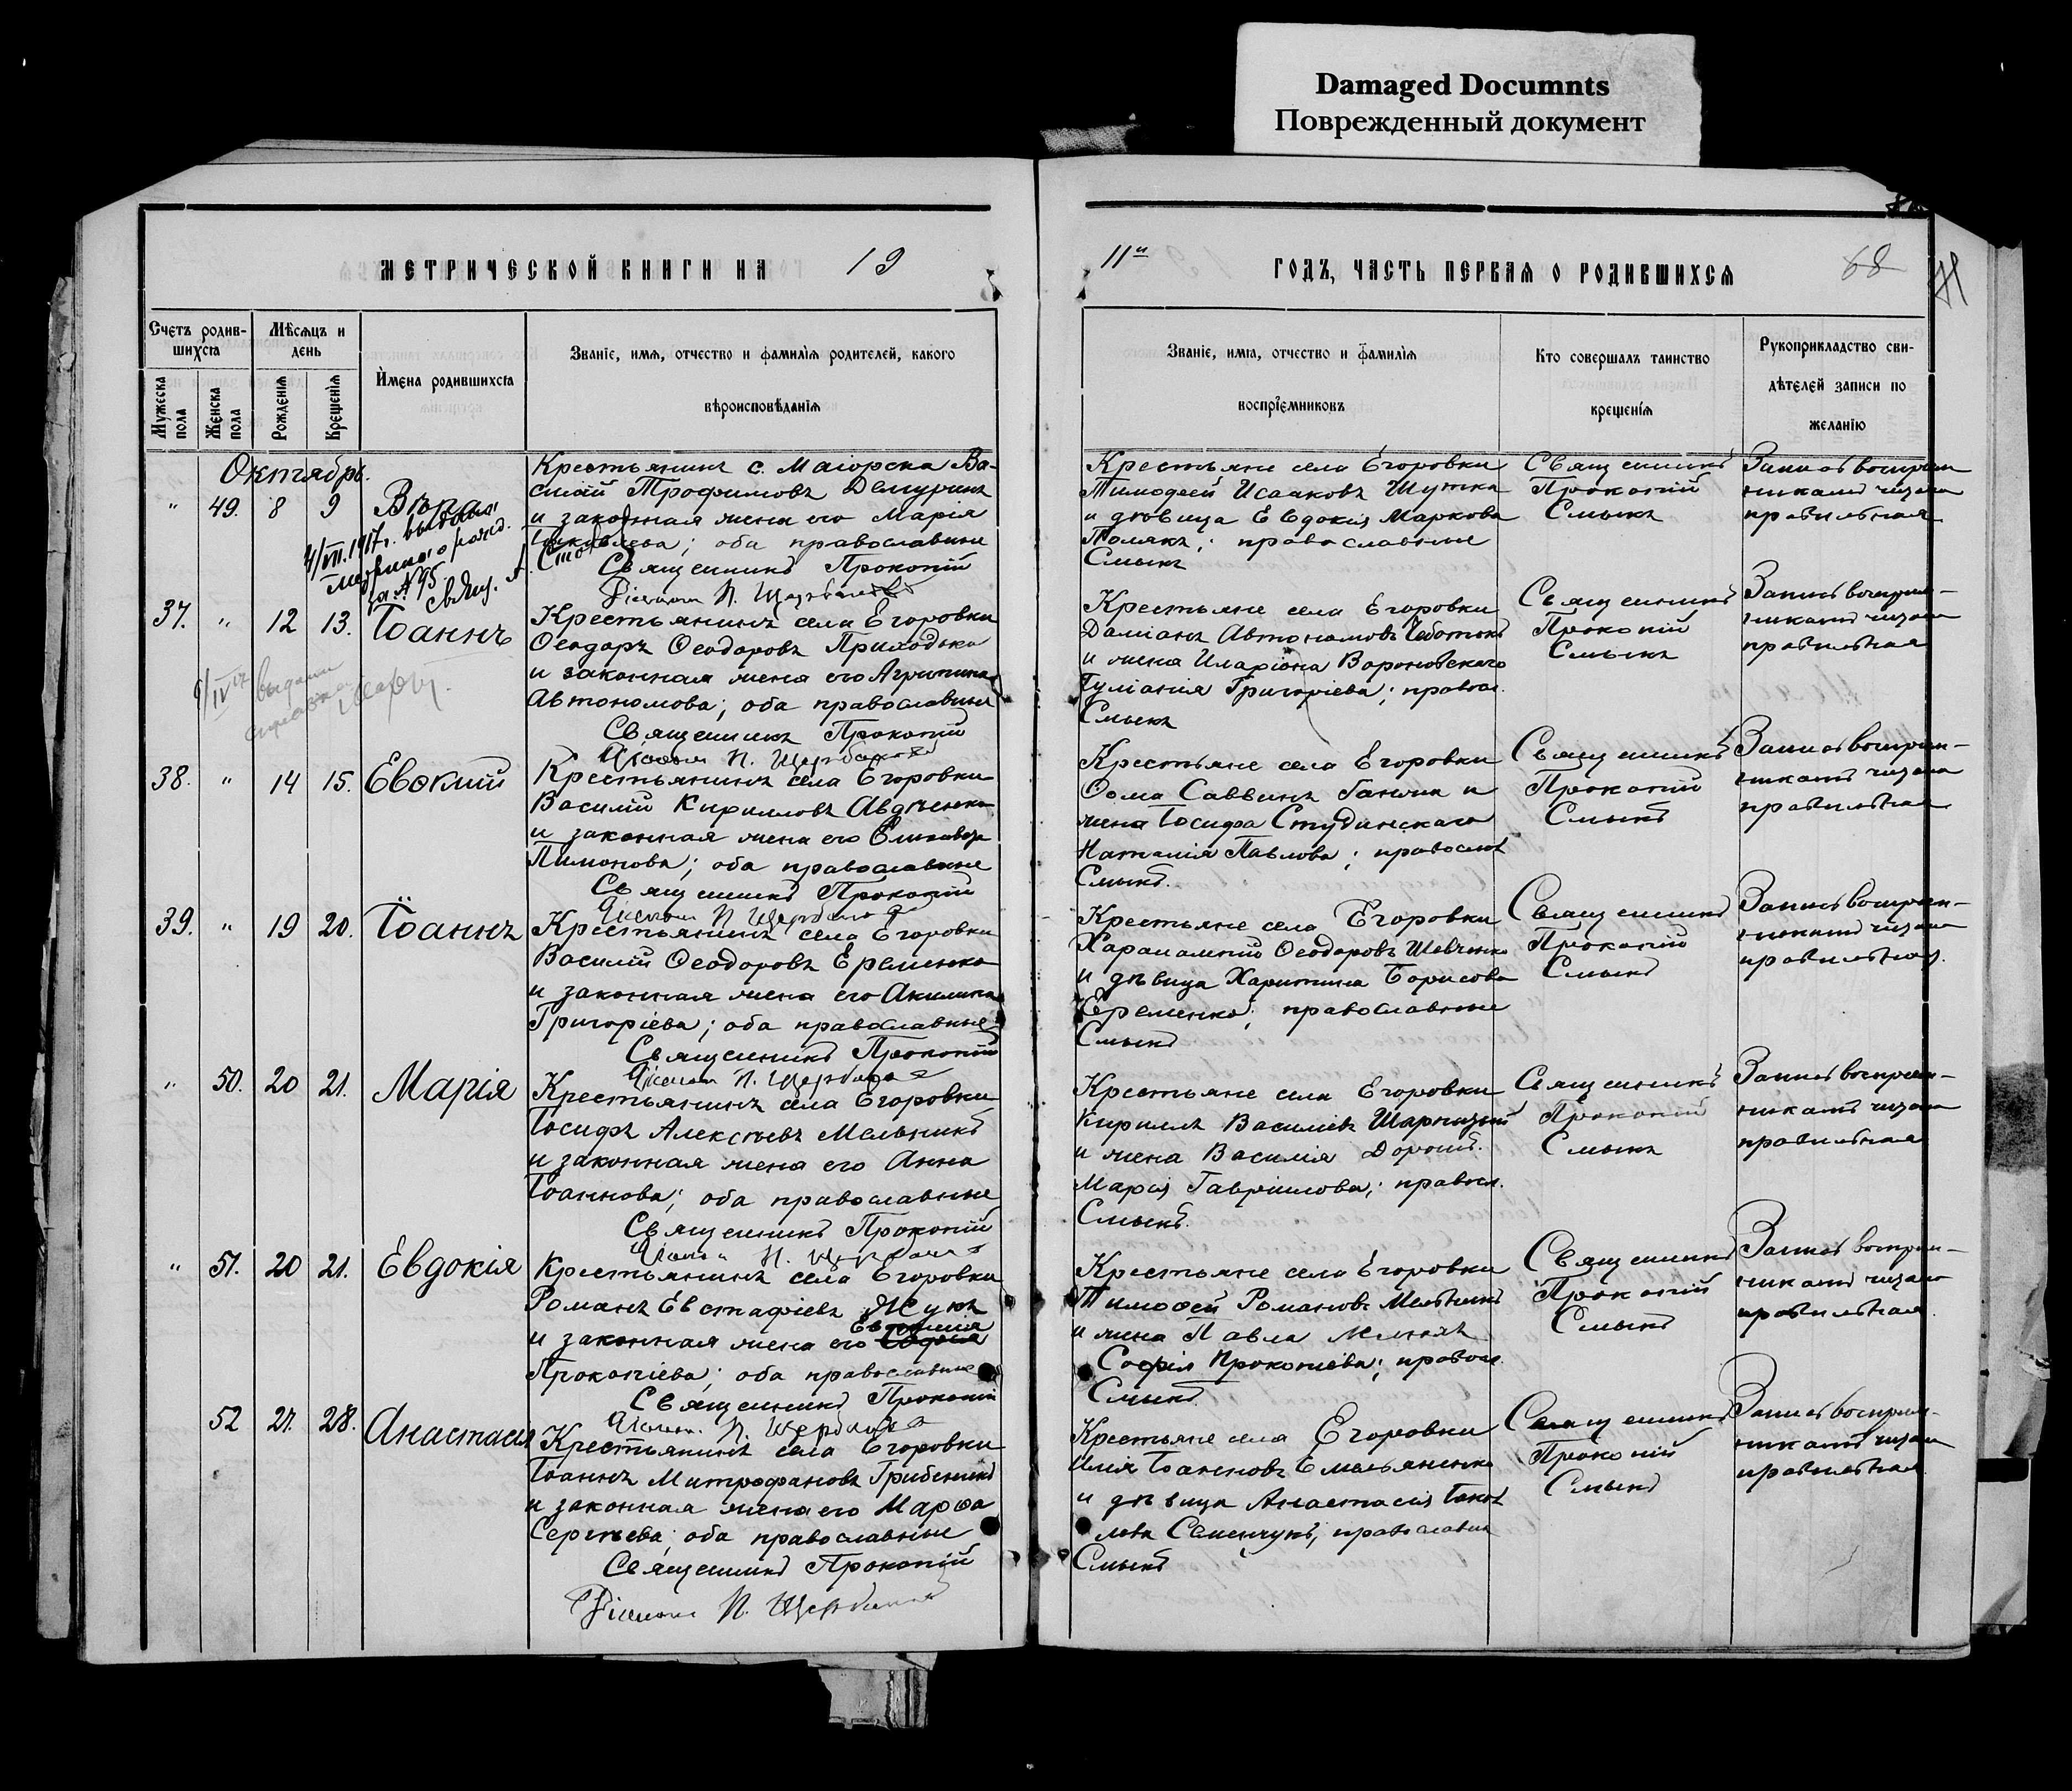 Damaged Documnts
Поврежденный документ
МЕТРИЧЕСКОЙ КНИГИ НА 19
Счетъ родившихся
Мѣсяцъ и день
Имена родившихся
Званіе, имя, отчество и фамилія родителей, какого
вѣроисповѣданія
Мужеска пола
Женска пола
Рожденія
Крещенія
Октябрь.
" 49. 8 9 Вѣра
4/VII.1917г. выдана
за №95.
свящ. А.
Крестьянинъ с. Маіорска Ва-
силій Трофимовъ Демуринъ
и законная жена его Марія
Іаковлева; оба православные
Священникъ Прокопій
Діаконъ П. Щербаковъ
37. " 12 13. Іоаннъ
выдана
справка
Крестьянинъ села Егоровки
Ѳеодоръ Ѳеодоровъ Приходько
и законная жена его Агриппина
Автономова; оба православные
Священникъ Прокопій
Діаконъ П. Щербаковъ
38. " 14 15. Евѳимій
Крестьянинъ села Егоровки
Василій Кирилловъ Авдѣенко
и законная жена его Елисавета
Пимонова; оба православные
Священникъ Прокопій
Діаконъ П. Щербаковъ
39. " 19 20. Іоаннъ
Крестьянинъ села Егоровки
Василій Ѳеодоровъ Еременко
и законная жена его Акилина
Григоріева; оба православные
Священникъ Прокопій
Діаконъ П. Щербаковъ
" 50. 20 21. Марія
Крестьянинъ села Егоровки
Іосифъ Алексѣевъ Мельникъ
и законная жена его Анна
Іоаннова; оба православные
Священникъ Прокопій
Діаконъ П. Щербаковъ
" 51. 20 21. Евдокія
Крестьянинъ села Егоровки
Романъ Евстафіевъ Жукъ
и законная жена его
Прокопіева; оба православные
Священникъ Прокопій
Діаконъ П. Щербаковъ
52 27. 28. Анастасія
Крестьянинъ села Егоровки
Іоаннъ Митрофановъ Грибенникъ
и законная жена его Марѳа
Сергѣева; оба православные
Священникъ Прокопій
Діаконъ П. Щербаковъ
11й ГОДЪ, ЧАСТЬ ПЕРВАЯ О РОДИВШИХСЯ
68
Званіе, имя, отчество и фамилія
воспріемниковъ
Кто совершалъ таинство
крещенія
Рукоприкладство сви-
дѣтелей записи по
желанію
Крестьяне села Егоровки
Тимоѳей Исааковъ Шутка
и дѣвица Евдокія Маркова
Полякъ; православные
Смыкъ
Священникъ
Прокопій
Смыкъ
Запись воспріем-
никами читана
правильная
Крестьяне села Егоровки
Даміанъ Автономовъ Чеботокъ
и жена Иларіона Вороновскаго
Іуліанія Григоріева; правосл.
Смыкъ
Священникъ
Прокопій
Смыкъ
Запись воспріем-
никами читана
правильная
Крестьяне села Егоровки
Ѳома Саввинъ и
жена Іосифа Студинскаго
Наталія Павлова; правосл.
Смыкъ.
Священникъ
Прокопій
Смыкъ
Запись воспріем-
никами читана
правильная
Крестьяне села Егоровки
Харалампій Ѳеодоровъ Шевченко
и дѣвица Харитина Борисова
Еременко; православные
Смыкъ
Священникъ
Прокопій
Смыкъ
Запись воспріем-
никами читана
правильная.
Крестьяне села Егоровки
Кириллъ Василіевъ
и жена Василія
Марія Гавріилова; правосл.
Смыкъ.
Священникъ
Прокопій
Смыкъ
Запись воспріем-
никами читана
правильная
Крестьяне села Егоровки
Тимоѳей Романовъ Мельникъ
и жена Павла
Софія Прокопіева; правосл.
Смыкъ.
Священникъ
Прокопій
Смыкъ
Запись воспріем-
никами читана
правильная.
Крестьяне села Егоровки
Илія Іоанновъ Емельяненко
и дѣвица Анастасія Іаков-
лева Семенчукъ; православн
Смыкъ
Священникъ
Прокопій
Смыкъ
Запись воспріем-
никами читана
правильная.